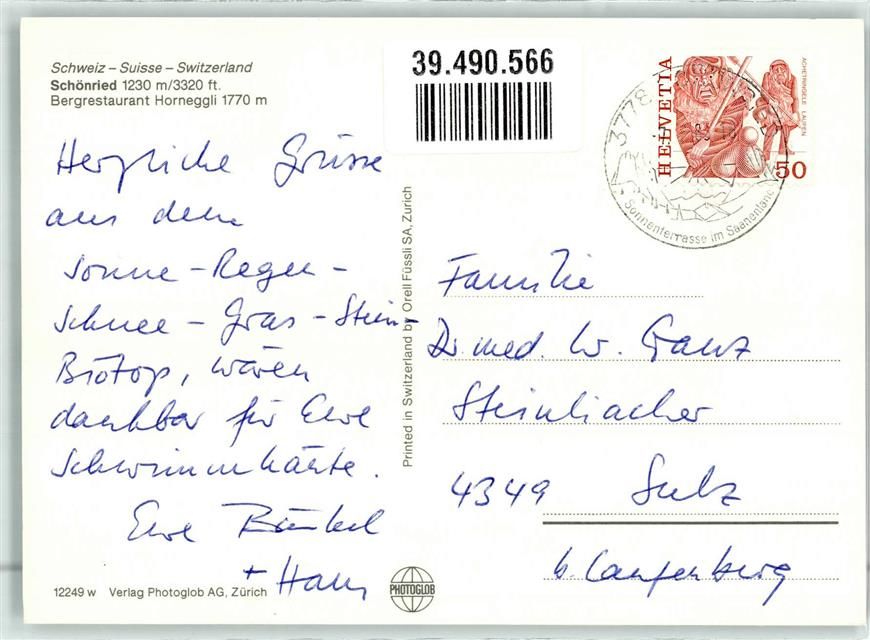 Schweiz – Suisse – Switzerland
Schönried 1230 m/3320 ft.
Bergrestaurant Horneggli 1770 m
39.490.566
HELVETIA
ACHETRINGELE LAUPEN
50
3778
Sonnenterrasse im Saanenland
Herzliche Grüsse
aus dem
Sonne - Regen -
Schnee - Gras - Stein-
Biotop, wären
dankbar für Eure
Schwimmhäute.
Eure
+ Hans
Printed in Switzerland by Orell Füssli SA, Zürich
Familie
Dr. med. W. Ganz
4349 Sulz
b. Laufenberg
12249 w Verlag Photoglob AG, Zürich
PHOTOGLOB